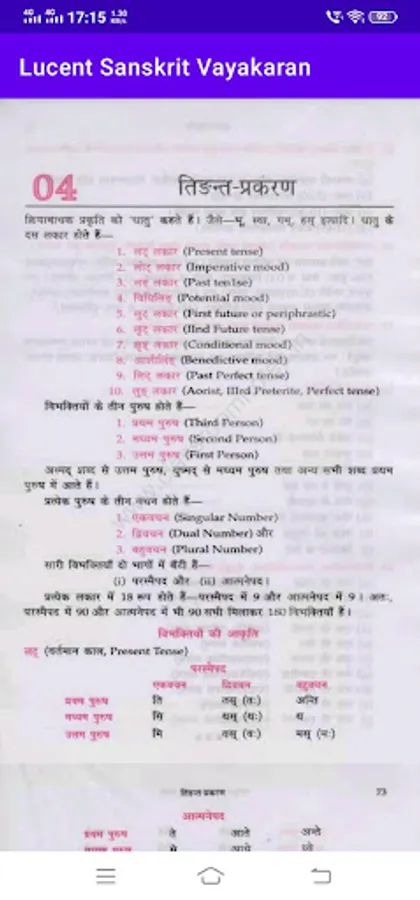 17:15 1.30 KB/s 92
Lucent Sanskrit Vayakaran
04 तिङन्त-प्रकरण
क्रियावाचक प्रकृति को 'धातु' कहते हैं। जैसे—भू, स्था, गम्, हस् इत्यादि। धातु के
दस लकार होते हैं—
1. लट् लकार (Present tense)
2. लोट् लकार (Imperative mood)
3. लङ् लकार (Past ten1se)
4. विधिलिङ् (Potential mood)
5. लुट् लकार (First future or periphrastic)
6. लृट् लकार (IInd Future tense)
7. लृङ् लकार (Conditional mood)
8. आशीर्लिङ् (Benedictive mood)
9. लिट् लकार (Past Perfect tense)
10. लुङ् लकार (Aorist, IIIrd Preterite, Perfect tense)
विभक्तियों के तीन पुरुष होते हैं—
1. प्रथम पुरुष (Third Person)
2. मध्यम पुरुष (Second Person)
3. उत्तम पुरुष (First Person)
अस्मद् शब्द से उत्तम पुरुष, युष्मद् से मध्यम पुरुष तथा अन्य सभी शब्द प्रथम
पुरुष में आते हैं।
प्रत्येक पुरुष के तीन वचन होते हैं—
1. एकवचन (Singular Number)
2. द्विवचन (Dual Number) और
3. बहुवचन (Plural Number)
सारी विभक्तियाँ दो भागों में बँटी हैं—
(i) परस्मैपद और (ii) आत्मनेपद।
प्रत्येक लकार में 18 रूप होते हैं—परस्मैपद में 9 और आत्मनेपद में 9। अतः,
परस्मैपद में 90 और आत्मनेपद में भी 90 सभी मिलाकर 180 विभक्तियाँ हैं।
विभक्तियों की आकृति
लट् (वर्तमान काल, Present Tense)
परस्मैपद
एकवचन द्विवचन बहुवचन
प्रथम पुरुष ति तस् (तः) अन्ति
मध्यम पुरुष सि थस् (थः) थ
उत्तम पुरुष मि वस् (वः) मस् (मः)
तिङन्त प्रकरण 73
आत्मनेपद
प्रथम पुरुष ते आते अन्ते
मध्यम पुरुष से आथे ध्वे